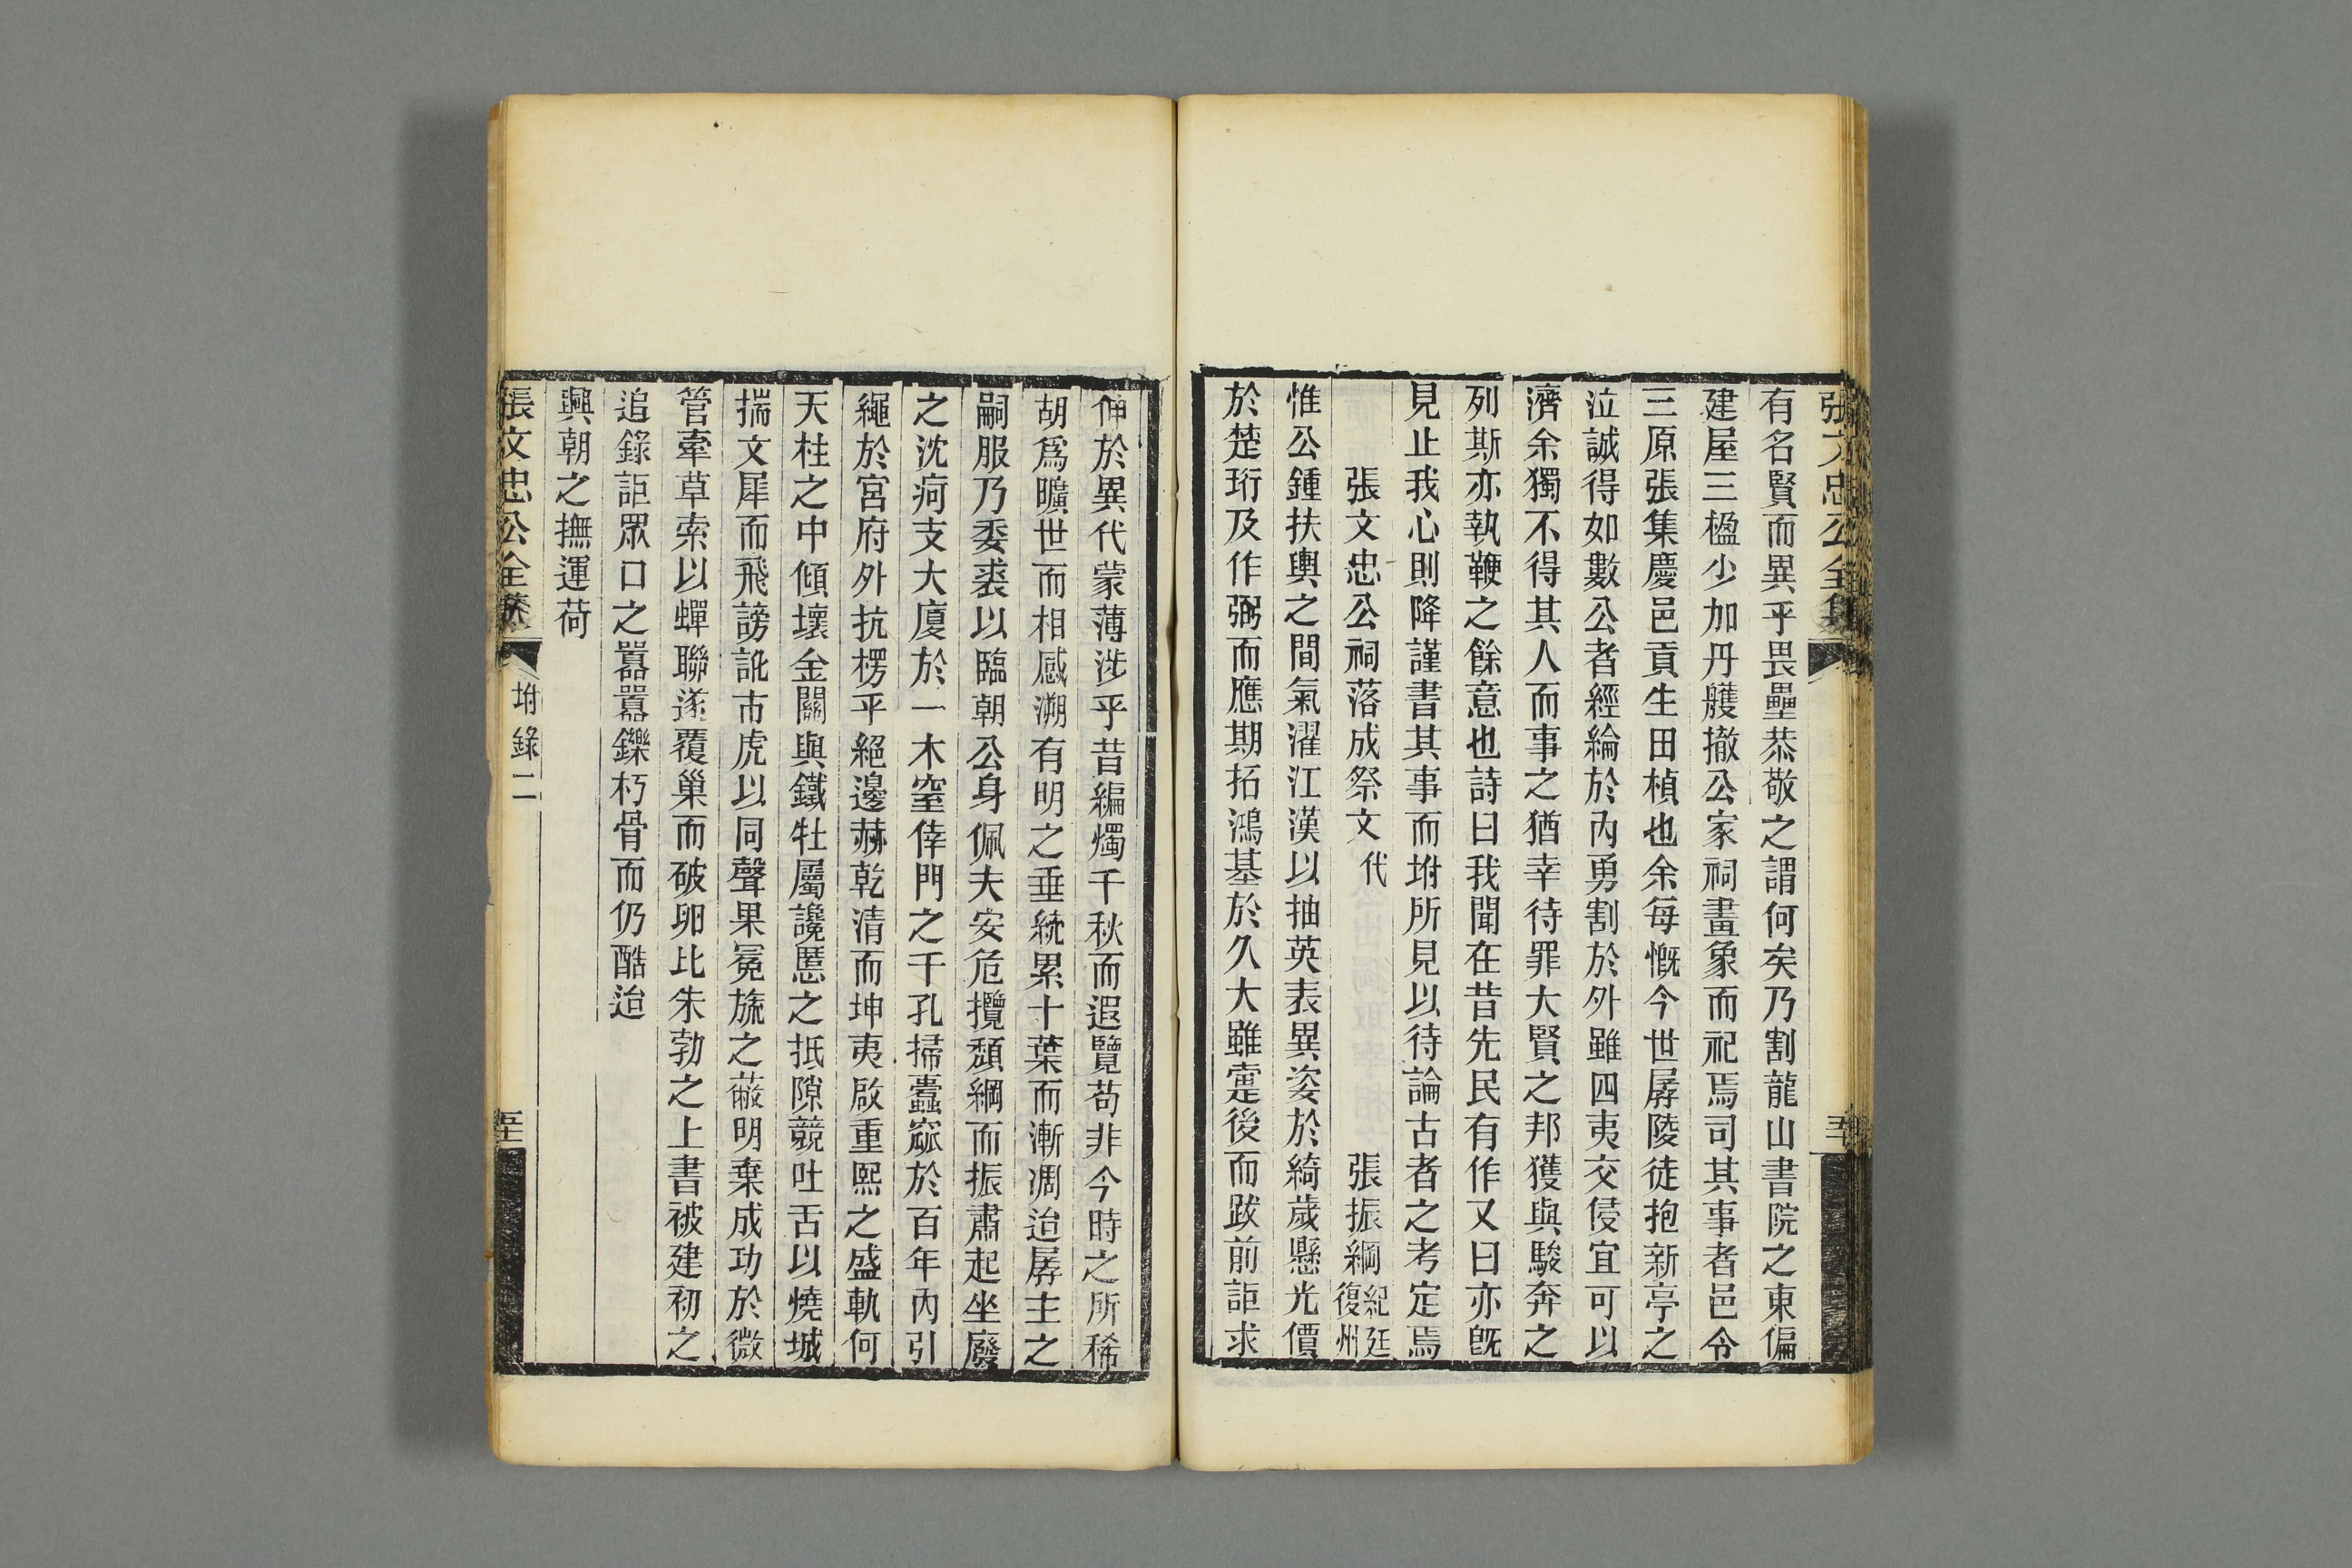 張文忠公全集
有名賢而異乎畏壘恭敬之謂何矣乃割龍山書院之東偏
建屋三楹少加丹雘撤公家祠畫象而祀焉司其事者邑令
三原張集慶邑貢生田楨也余每慨今世孱陵徒抱新亭之
泣誠得如數公者經綸於內勇割於外雖四夷交侵宜可以
濟余獨不得其人而事之猶幸待罪大賢之邦獲與駿奔之
列斯亦執鞭之餘意也詩曰我聞在昔先民有作又曰亦旣
見止我心則降謹書其事而坿所見以待論古者之考定焉
張文忠公祠落成祭文 代 張振綱 紀廷 復州
惟公鍾扶輿之間氣濯江漢以抽英表異姿於綺歲懸光價
於楚珩及作弼而應期拓鴻基於久大雖疐後而跋前詎求
伸於異代蒙薄涉乎昔編燭千秋而遐覽苟非今時之所稀
胡爲曠世而相感溯有明之垂統累十葉而漸凋迨孱主之
嗣服乃委裘以臨朝公身佩夫安危攬頹綱而振肅起坐廢
之沈痾支大廈於一木窒倖門之千孔掃蠹窳於百年內引
繩於宮府外抗楞乎絕邊赫乾清而坤夷啟重熙之盛軌何
天柱之中傾壞金關與鐵牡屬讒慝之抵隙競吐舌以燒城
揣文犀而飛謗訛市虎以同聲果冕旒之蔽明棄成功於微
管牽草索以蟬聯遂覆巢而破卵比朱勃之上書被建初之
追錄詎眾口之嚚嚚鑠朽骨而仍酷迨
興朝之撫運荷
張文忠公全集
坿錄二